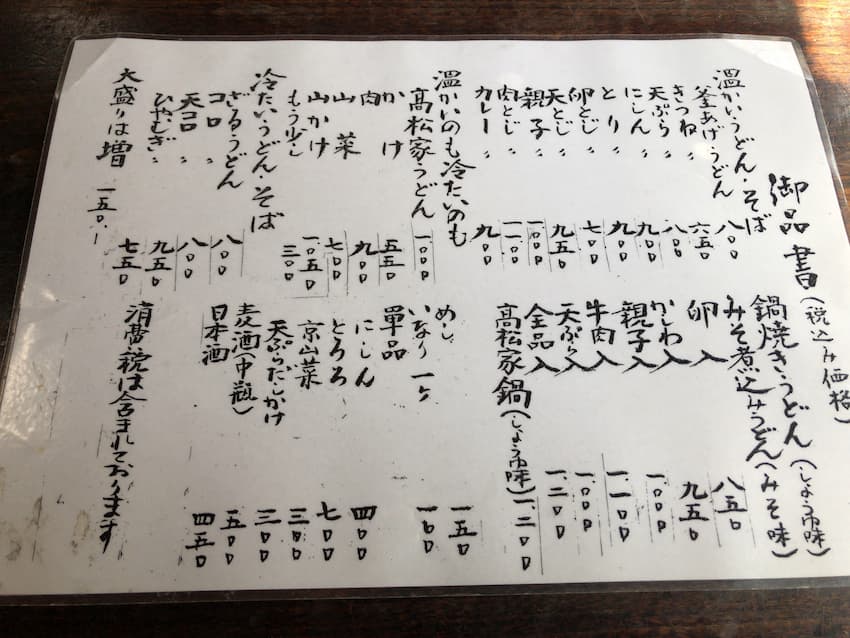 御品書(税込み価格)
温かいうどん・そば
釜あげうどん 八〇〇
きつね〃 六五〇
天ぷら〃 八〇〇
にしん〃 九〇〇
とり〃 九〇〇
卵とじ〃 七〇〇
天とじ〃 九五〇
親子〃 一、〇〇〇
肉とじ〃 一、一〇〇
カレー〃 九〇〇
温かいのも冷たいのも
高松家うどん 一、〇〇〇
かけ 五五〇
肉 九〇〇
山菜 七〇〇
山かけ 一、〇五〇
もう少し 三〇〇
冷たいうどん・そば
ざるうどん 八〇〇
コロ〃 八〇〇
天コロ〃 九五〇
ひやむぎ〃 七五〇
大盛りは増 一五〇.-
鍋焼きうどん(しょうゆ味)
みそ煮込みうどん(みそ味)
卵入 八五〇
かしわ入 九五〇
親子入 一、〇〇〇
牛肉入 一、一〇〇
天ぷら入 一、〇〇〇
全品入 一、二〇〇
高松家鍋(しょうゆ味) 一、二〇〇
めし 一五〇
いなり一ケ
単品
にしん 四〇〇
とろろ 七〇〇
京山菜 三〇〇
天ぷらだしかけ 三〇〇
麦酒(中瓶) 五〇〇
日本酒 四五〇
消費税は含まれております